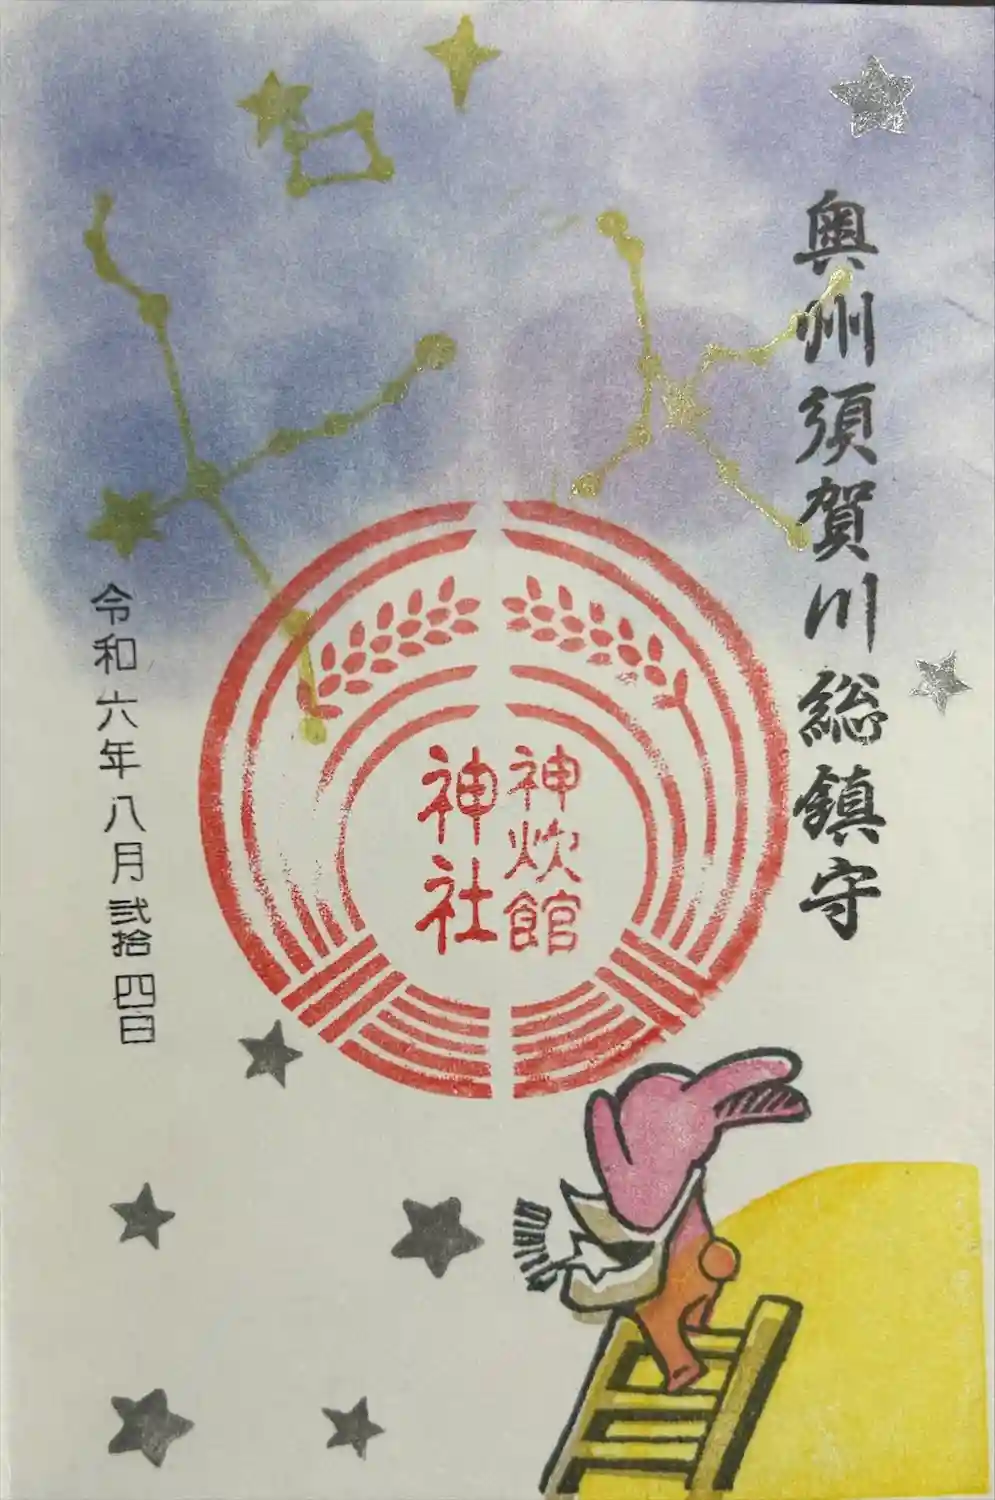 奥州須賀川総鎮守
神炊館
神社
令和六年八月弐拾四日